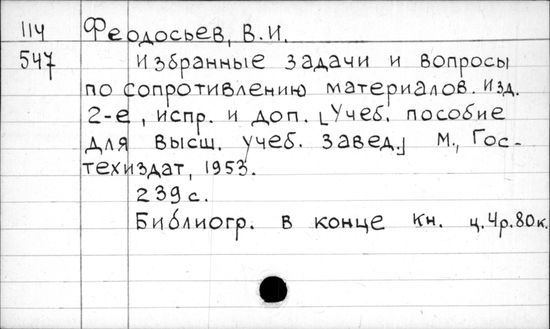 114 Феодосьев, В.И.
547 Избранные задачи и вопросы
по сопротивлению материалов. Изд.
2-е, испр. и доп. [Учеб. пособие
для высш. учеб. завед.] М., Гос-
техиздат, 1953.
239 с.
Библиогр. в конце кн. ц.4р.80к.